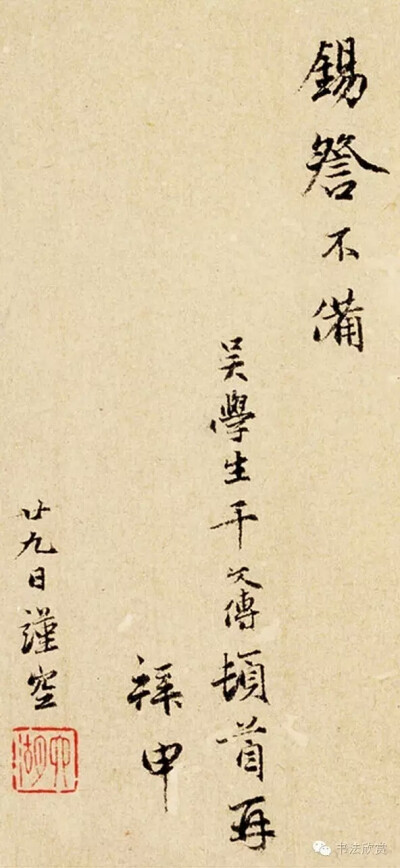 錫詧不備
吴學生干文傳頓首再
拜申
廿九日謹空
书法欣赏